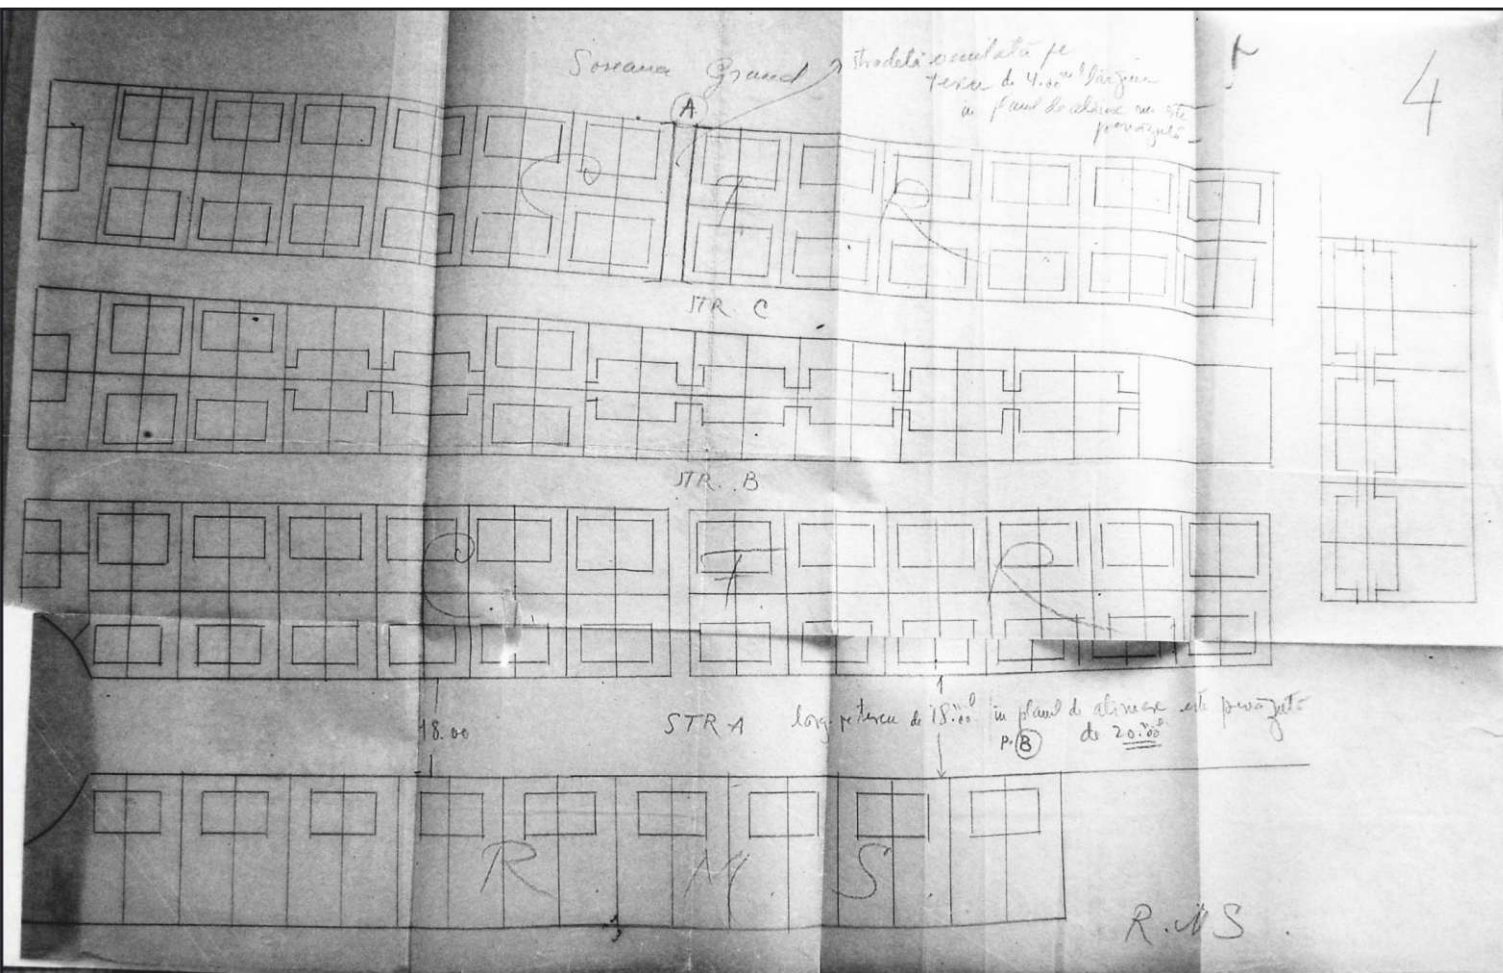 Soseaua Grand
Stradela executată pe
teren de 4.00 ml lărgime
în planul de aliniere nu este
prevăzută
4
A
C F R
STR. C
STR. B
C F R
18.00
STR A larg. pe teren de 18.00 ml în planul de aliniere este prevăzută
p. B de 20.00 ml
R M S
R. M S.